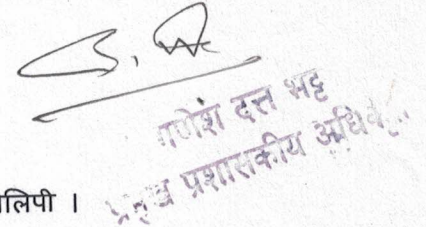 गणेश दत्त भट्ट
प्रमुख प्रशासकीय
लिपी ।